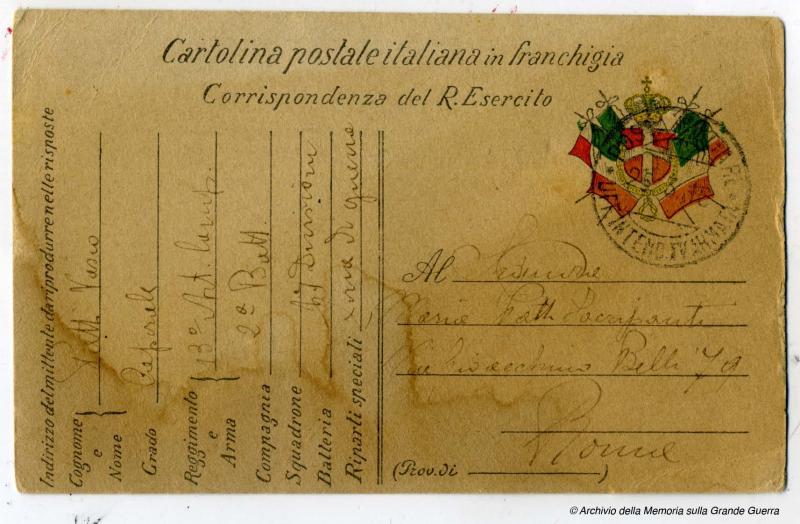 Cartolina postale italiana in franchigia
Corrispondenza del R. Esercito
Indirizzo del mittente da riprodurre nelle risposte
Cognome e Nome Vasco
Grado
Reggimento e Arma 13º Art. Camp.
Compagnia 2ª Batt
Squadrone
Batteria 4ª Divisione
Riparti speciali zona di guerra
Al
Maria
Via Gioacchino Belli 79
Roma
(Prov. di
© Archivio della Memoria sulla Grande Guerra